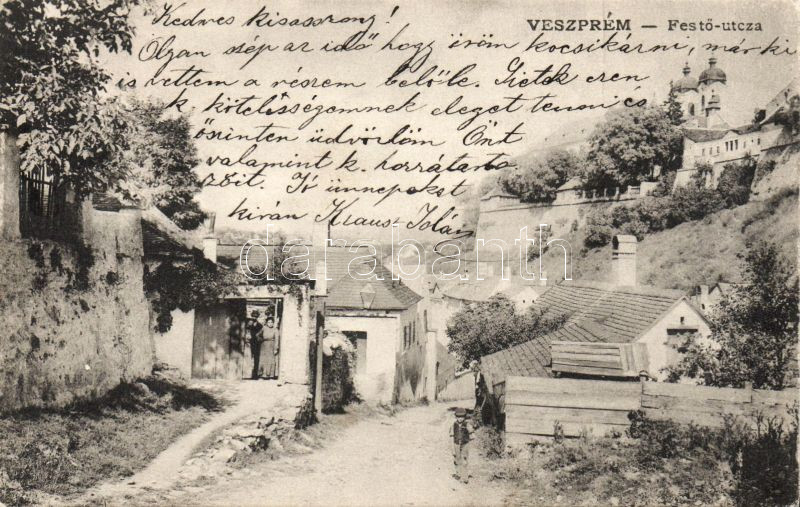 VESZPRÉM — Festő-utcza
Kedves kisasszony!
Olyan szép az idő hogy öröm kocsikázni, már ki
is vettem a részem belőle. Ezen
k. kötelességemnek eleget tenni és
őszinten üdvözlöm Önt
valamint k. hozzátarto
zóit. Jó ünnepeket
kíván Klausz
darabanth.com